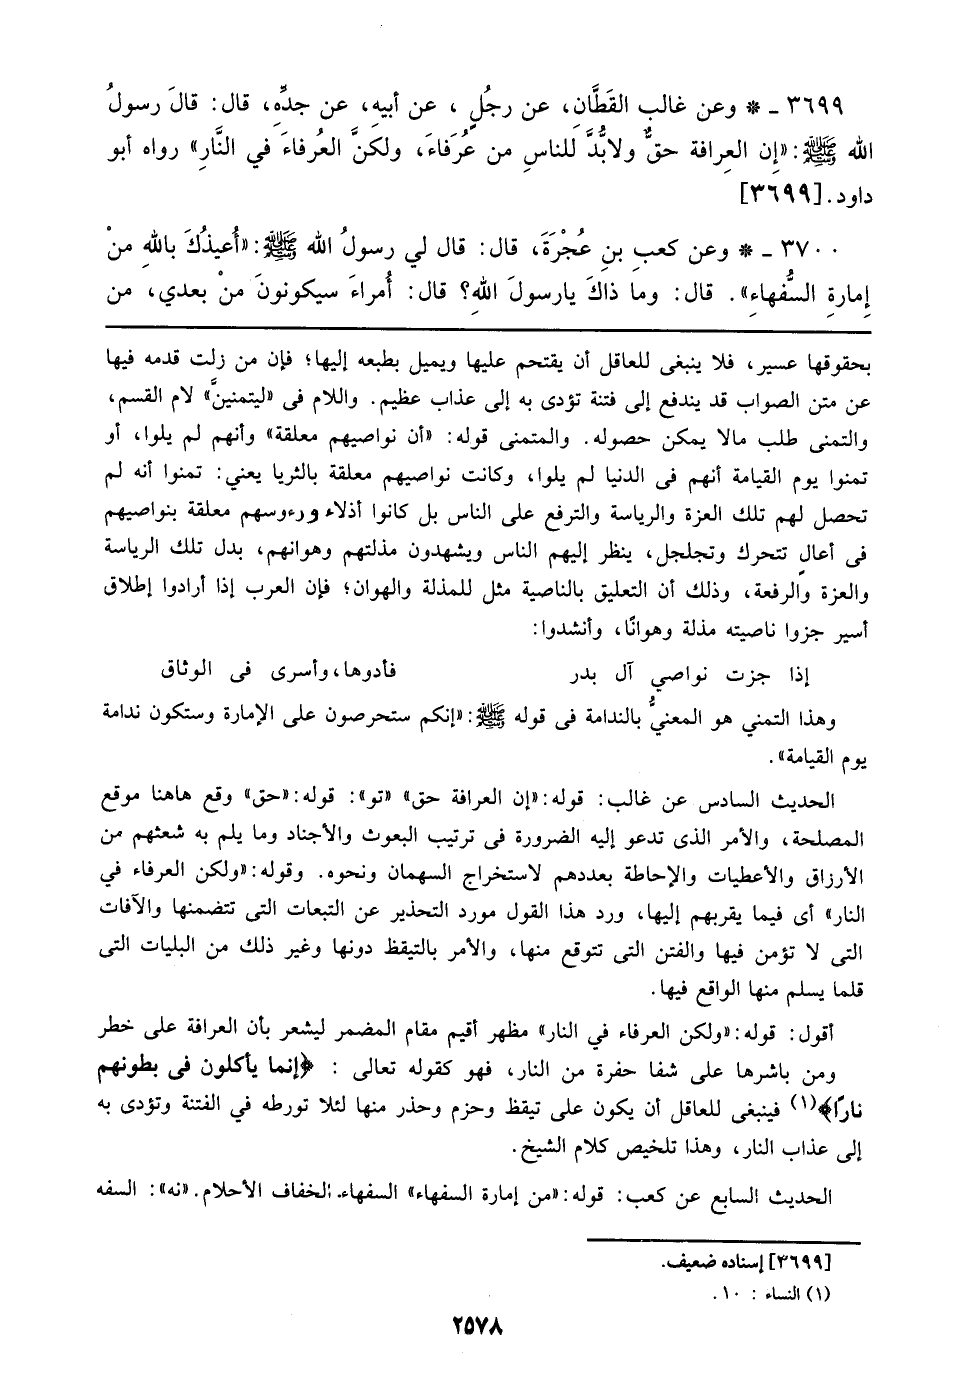 ٣٦٩٩ ـ * وعن غالبِ القَطَّانِ، عن رجُلٍ، عن أبيهِ، عن جدِّهِ، قال: قالَ رسولُ
الله ﷺ: «إِن العِرافة حقٌّ ولابُدَّ للناسِ من عُرَفاءَ، ولكنَّ العُرفاءَ في النَّارِ» رواه أبو
داود. [٣٦٩٩]
٣٧٠٠ ـ * وعن كعبِ بنِ عُجْرَةَ، قال: قال لي رسولُ الله ﷺ: «أُعيذُكَ باللهِ منْ
إِمارةِ السُّفهاءِ». قال: وما ذاكَ يارسولَ اللهِ؟ قال: أُمراءَ سيكونونَ منْ بعدي، من
بحقوقها عسير، فلا ينبغى للعاقل أن يقتحم عليها ويميل بطبعه إليها؛ فإن من زلت قدمه فيها
عن متن الصواب قد يندفع إلى فتنة تؤدى به إلى عذاب عظيم. واللام فى «ليتمنينَّ» لام القسم،
والتمنى طلب مالا يمكن حصوله. والمتمنى قوله: «أن نواصيهم معلقة» وأنهم لم يلوا، أو
تمنوا يوم القيامة أنهم فى الدنيا لم يلوا، وكانت نواصيهم معلقة بالثريا يعني: تمنوا أنه لم
تحصل لهم تلك العزة والرياسة والترفع على الناس بل كانوا أذلاء ورءوسهم معلقة بنواصيهم
فى أعالٍ تتحرك وتجلجل، ينظر إليهم الناس ويشهدون مذلتهم وهوانهم، بدل تلك الرياسة
والعزة والرفعة، وذلك أن التعليق بالناصية مثل للمذلة والهوان؛ فإن العرب إذا أرادوا إطلاق
أسير جزوا ناصيته مذلة وهوانًا، وأنشدوا:
إذا جزت نواصي آل بدر فأدوها، وأسرى فى الوثاق
وهذا التمني هو المعنيُّ بالندامة فى قوله ﷺ: «إنكم ستحرصون على الإمارة وستكون ندامة
يوم القيامة».
الحديث السادس عن غالب: قوله: «إن العرافة حق» «تو»: قوله: «حق» وقع هاهنا موقع
المصلحة، والأمر الذى تدعو إليه الضرورة فى ترتيب البعوث والأجناد وما يلم به شعثهم من
الأرزاق والأعطيات والإحاطة بعددهم لاستخراج السهمان ونحوه. وقوله: «ولكن العرفاء في
النار» أى فيما يقربهم إليها، ورد هذا القول مورد التحذير عن التبعات التى تتضمنها والآفات
التى لا تؤمن فيها والفتن التى تتوقع منها، والأمر بالتيقظ دونها وغير ذلك من البليات التى
قلما يسلم منها الواقع فيها.
أقول: قوله: «ولكن العرفاء في النار» مظهر أقيم مقام المضمر ليشعر بأن العرافة على خطر
ومن باشرها على شفا حفرة من النار، فهو كقوله تعالى : ﴿إنما يأكلون فى بطونهم
نارًا﴾(١) فينبغى للعاقل أن يكون على تيقظ وحزم وحذر منها لئلا تورطه في الفتنة وتؤدى به
إلى عذاب النار، وهذا تلخيص كلام الشيخ.
الحديث السابع عن كعب: قوله: «من إمارة السفهاء» السفهاء. الخفاف الأحلام. «نه»: السفه
[٣٦٩٩] إسناده ضعيف.
(١) النساء : ١٠.
٢٥٧٨